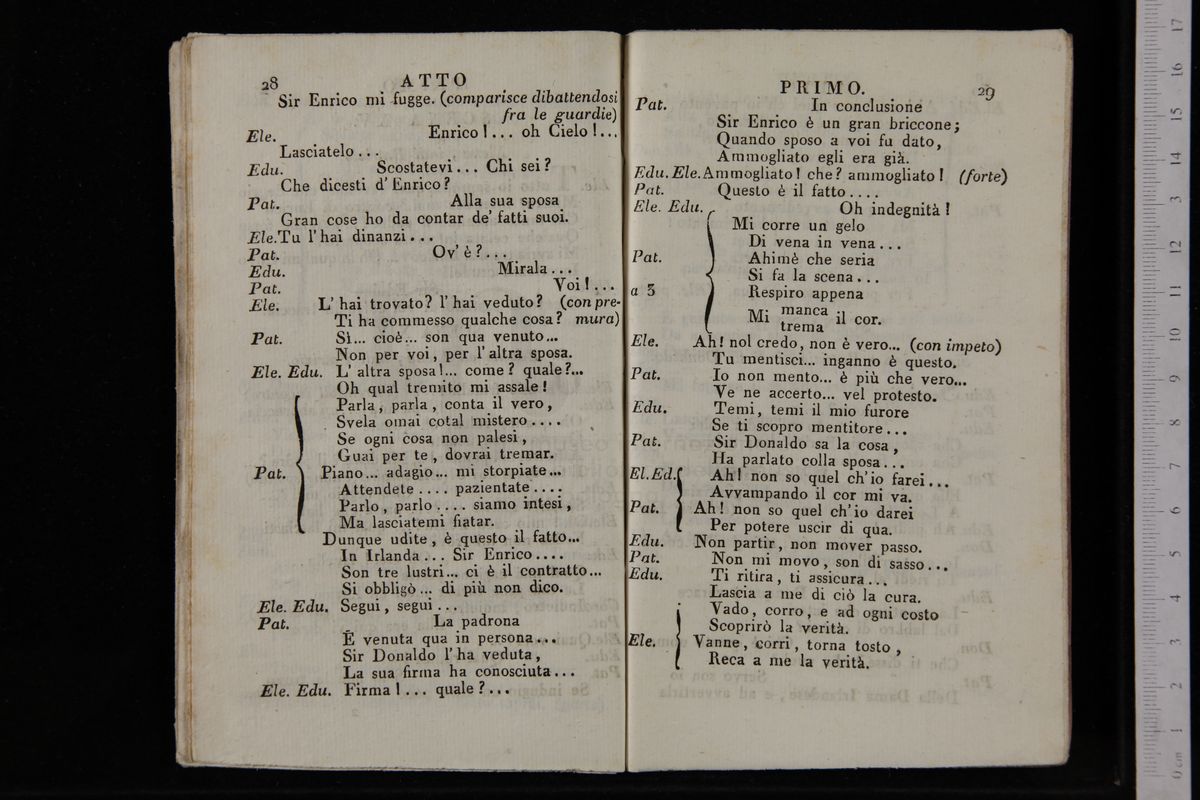 28 ATTO
Sir Enrico mi fugge. (comparisce dibattendosi
fra le guardie)
Ele. Enrico!... oh Cielo!...
Lasciatelo...
Edu. Scostatevi... Chi sei?
Che dicesti d'Enrico?
Pat. Alla sua sposa
Gran cose ho da contar de' fatti suoi.
Ele. Tu l'hai dinanzi...
Pat. Ov'è?...
Edu. Mirala...
Pat. Voi!...
Ele. L'hai trovato? l'hai veduto? (con pre-
Ti ha commesso qualche cosa? mura)
Pat. Sì... cioè... son qua venuto...
Non per voi, per l'altra sposa.
Ele. Edu. L'altra sposa!... come? quale?...
Oh qual tremito mi assale!
Parla, parla, conta il vero,
Svela omai cotal mistero....
Se ogni cosa non palesi,
Guai per te, dovrai tremar.
Pat. Piano... adagio... mi storpiate...
Attendete.... pazientate....
Parlo, parlo.... siamo intesi,
Ma lasciatemi fiatar.
Dunque udite, è questo il fatto...
In Irlanda... Sir Enrico....
Son tre lustri... ci è il contratto...
Si obbligò... di più non dico.
Ele. Edu. Segui, segui...
Pat. La padrona
È venuta qua in persona...
Sir Donaldo l'ha veduta,
La sua firma ha conosciuta...
Ele. Edu. Firma!... quale?...
PRIMO. 29
Pat. In conclusione
Sir Enrico è un gran briccone;
Quando sposo a voi fu dato,
Ammogliato egli era già.
Edu. Ele. Ammogliato! che? ammogliato! (forte)
Pat. Questo è il fatto....
Ele. Edu. Oh indegnità!
Mi corre un gelo
Di vena in vena...
Pat. Ahimè che seria
Si fa la scena...
a 3 Respiro appena
Mi manca il cor.
trema
Ele. Ah! nol credo, non è vero... (con impeto)
Tu mentisci... inganno è questo.
Pat. Io non mento... è più che vero...
Ve ne accerto... vel protesto.
Edu. Temi, temi il mio furore
Se ti scopro mentitore...
Pat. Sir Donaldo sa la cosa,
Ha parlato colla sposa...
El. Ed. Ah! non so quel ch'io farei...
Avvampando il cor mi va.
Pat. Ah! non so quel ch'io darei
Per potere uscir di qua.
Edu. Non partir, non mover passo.
Pat. Non mi movo, son di sasso...
Edu. Ti ritira, ti assicura...
Lascia a me di ciò la cura.
Vado, corro, e ad ogni costo
Scoprirò la verità.
Ele. Vanne, corri, torna tosto,
Reca a me la verità.
0 cm 1 2 3 4 5 6 7 8 9 10 11 12 13 14 15 16 17